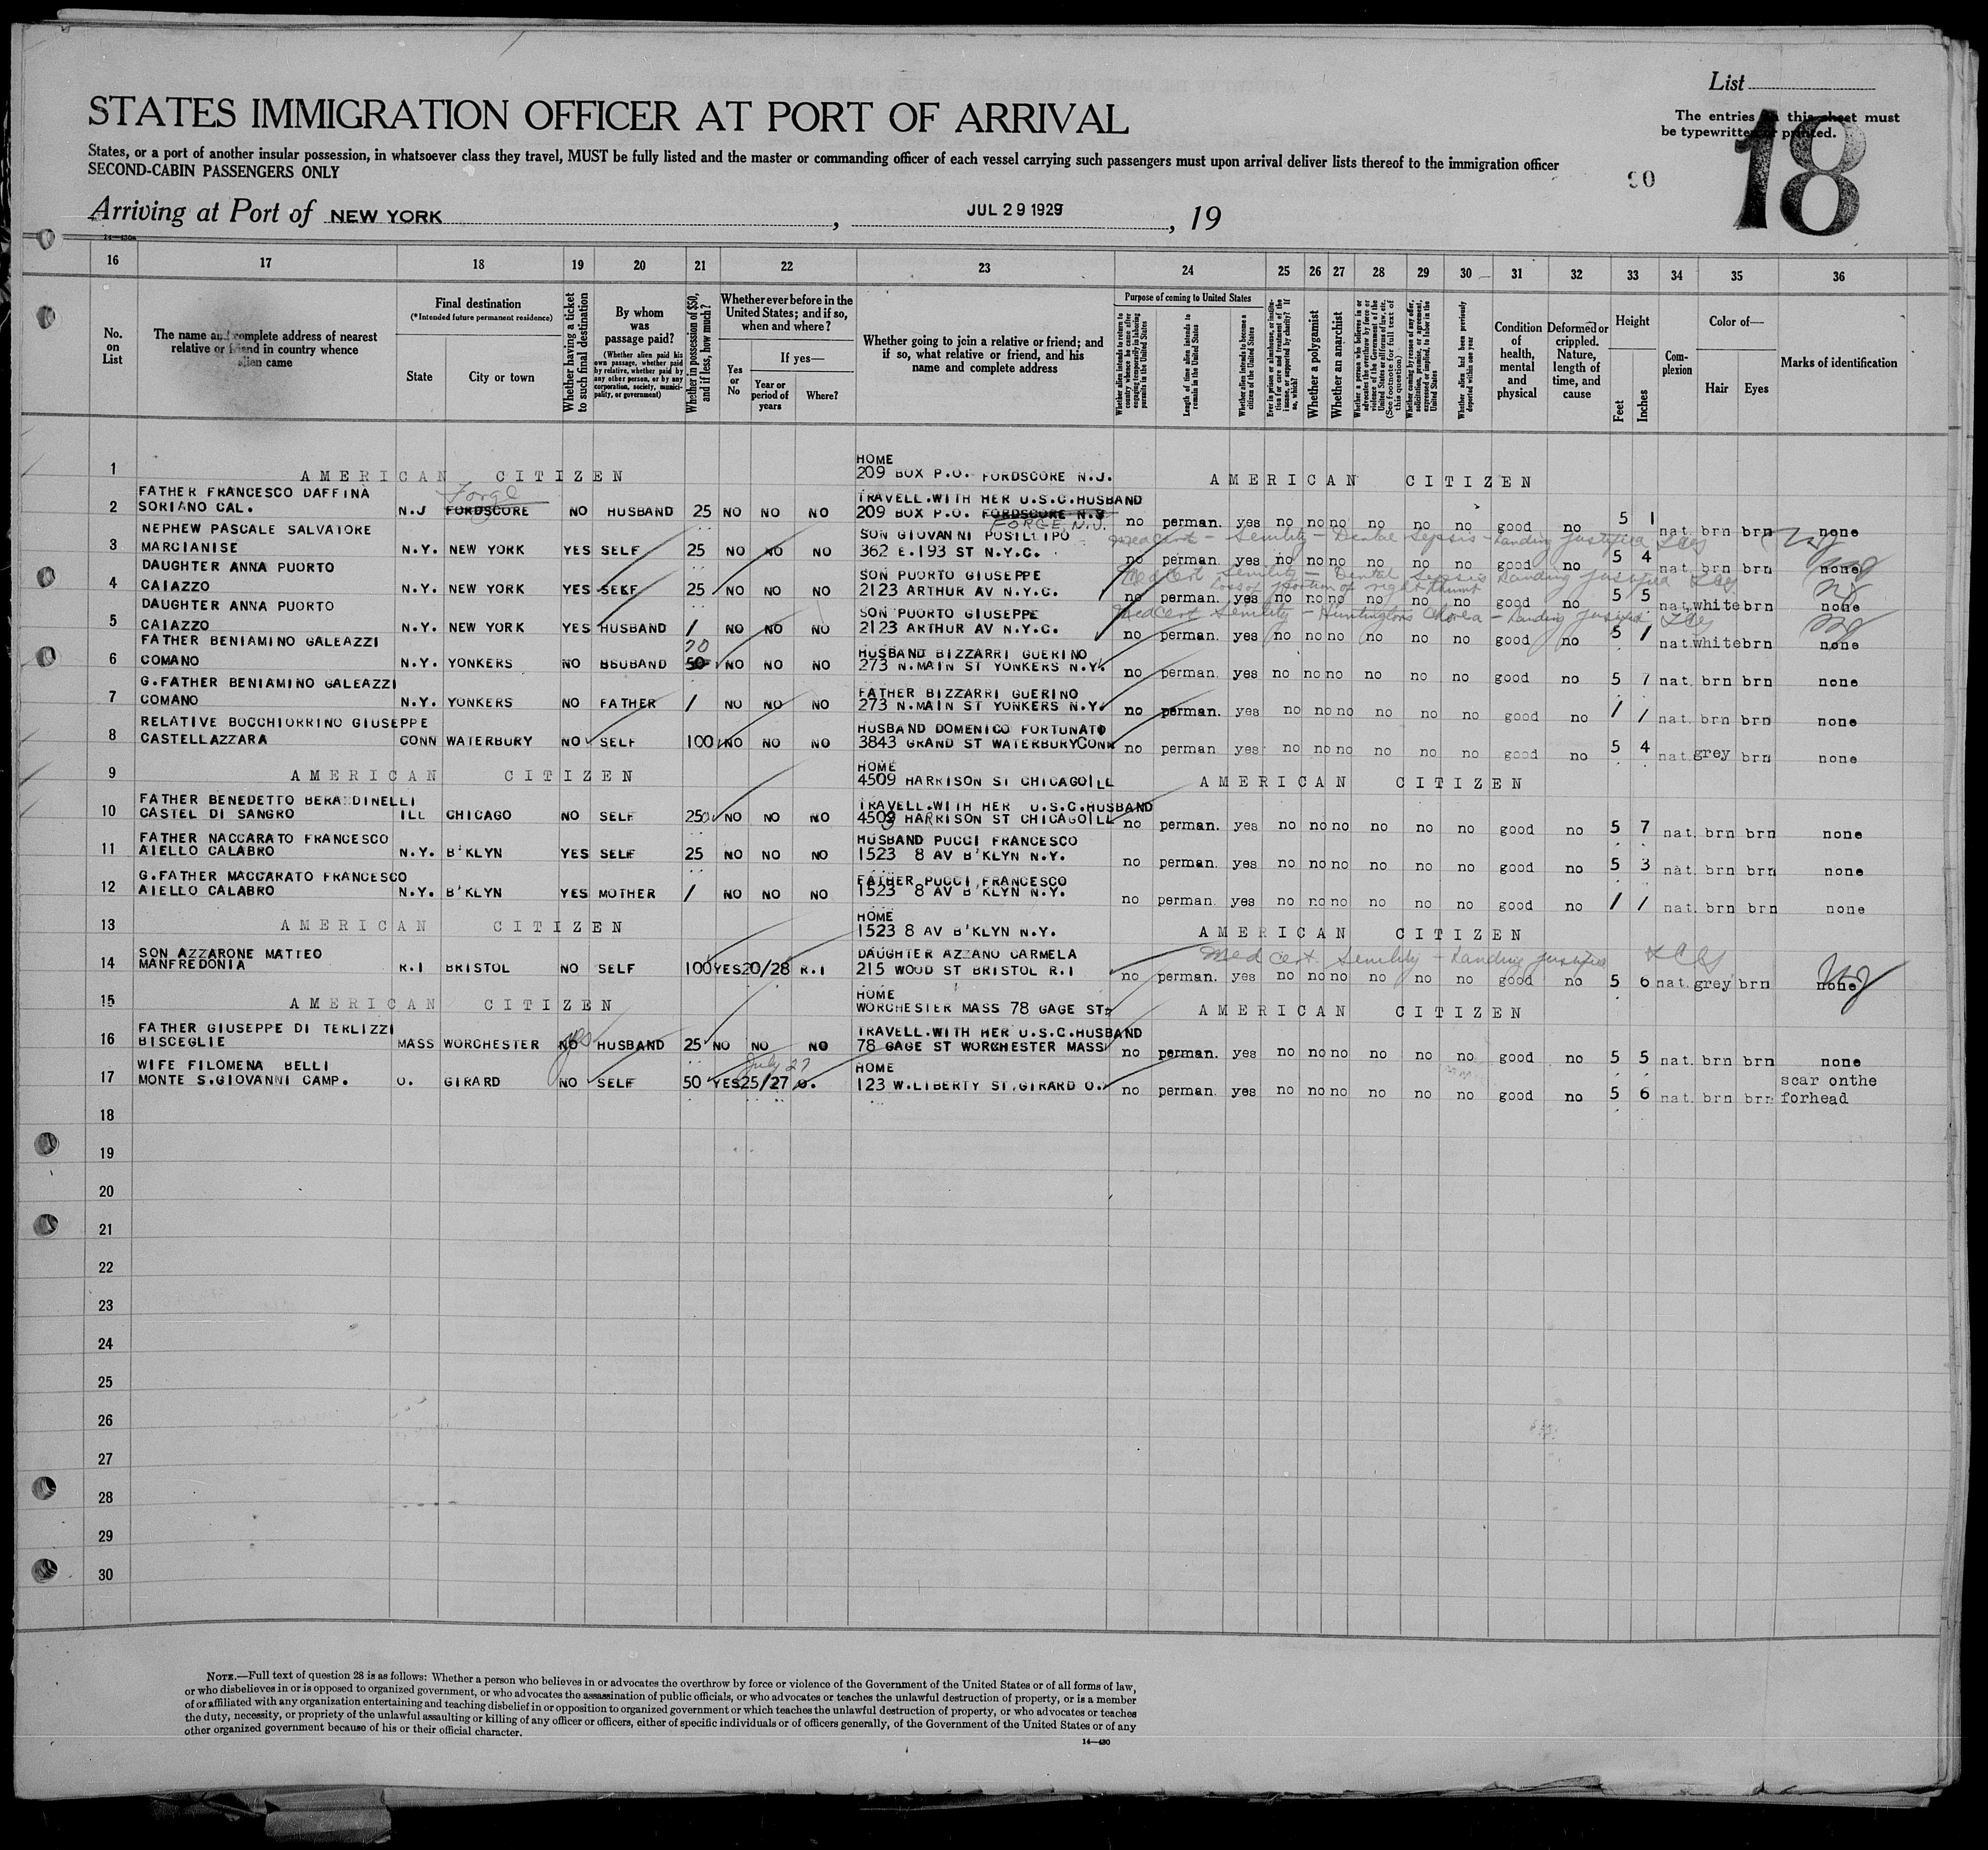 List
STATES IMMIGRATION OFFICER AT PORT OF ARRIVAL
The entries on this sheet must
be typewritten or printed.
18
States, or a port of another insular possession, in whatsoever class they travel, MUST be fully listed and the master or commanding officer of each vessel carrying such passengers must upon arrival deliver lists thereof to the immigration officer
SECOND-CABIN PASSENGERS ONLY
90
Arriving at Port of NEW YORK, JUL 29 1929, 19
14—430a
16 17 18 19 20 21 22 23 24 25 26 27 28 29 30 31 32 33 34 35 36
No. on List
The name and complete address of nearest relative or friend in country whence alien came
Final destination
(*Intended future permanent residence)
State
City or town
Whether having a ticket to such final destination
By whom was passage paid?
(Whether alien paid his own passage, whether paid by relative, whether paid by any other person, or by any corporation, society, municipality, or government)
Whether in possession of $50, and if less, how much?
Whether ever before in the United States; and if so, when and where?
Yes or No
If yes—
Year or period of years
Where?
Whether going to join a relative or friend; and if so, what relative or friend, and his name and complete address
Purpose of coming to United States
Whether alien intends to return to country whence he came after engaging temporarily in laboring pursuits in the United States
Length of time alien intends to remain in the United States
Whether alien intends to become a citizen of the United States
Ever in prison or almshouse, or institution for care and treatment of the insane, or supported by charity? If so, which?
Whether a polygamist
Whether an anarchist
Whether a person who believes in or advocates the overthrow by force or violence of the Government of the United States or all forms of law, etc. (See footnote for full text of this question)
Whether coming by reason of any offer, solicitation, promise, or agreement, expressed or implied, to labor in the United States
Whether alien had been previously deported within one year
Condition of health, mental and physical
Deformed or crippled. Nature, length of time, and cause
Height
Feet
Inches
Complexion
Color of—
Hair
Eyes
Marks of identification
HOME
1 AMERICAN CITIZEN 209 BOX P.O. FORDSCORE N.J. AMERICAN CITIZEN
FATHER FRANCESCO DAFFINA Forge TRAVELL.WITH HER U.S.C.HUSBAND
2 SORIANO CAL. N.J FORDSCORE NO HUSBAND 25 NO NO NO 209 BOX P.O. FORDSCORE N.J FORGE, N.J. no perman. yes no no no no no no good no 5 1 nat. brn brn none
NEPHEW PASCALE SALVATORE SON GIOVANNI POSILLIPO Med cert - Senility - Dental Sepsis - Landing justified
3 MARCIANISE N.Y. NEW YORK YES SELF 25 NO NO NO 362 E.193 ST N.Y.C. no perman. yes no no no no no no good no 5 4 nat. brn brn none
DAUGHTER ANNA PUORTO SON PUORTO GIUSEPPE Med Cert Senility - Dental Sepsis Landing justified
loss of portion of right thumb
4 CAIAZZO N.Y. NEW YORK YES SELF 25 NO NO NO 2123 ARTHUR AV N.Y.C. no perman. yes no no no no no no good no 5 5 nat. white brn none
DAUGHTER ANNA PUORTO SON PUORTO GIUSEPPE Med Cert Senility - Huntingtons Chorea - Landing justified
5 CAIAZZO N.Y. NEW YORK YES HUSBAND / NO NO NO 2123 ARTHUR AV N.Y.C. no perman. yes no no no no no no good no 5 / nat. white brn none
FATHER BENIAMINO GALEAZZI 20 HUSBAND BIZZARRI GUERINO
6 COMANO N.Y. YONKERS NO BBUBAND 50 NO NO NO 273 N.MAIN ST YONKERS N.Y. no perman. yes no no no no no no good no 5 7 nat. brn brn none
G.FATHER BENIAMINO GALEAZZI FATHER BIZZARRI GUERINO
7 COMANO N.Y. YONKERS NO FATHER / NO NO NO 273 N.MAIN ST YONKERS N.Y. no perman. yes no no no no no no good no / / nat. brn brn none
RELATIVE BOCCHIORRINO GIUSEPPE HUSBAND DOMENICO FORTUNATO
8 CASTELLAZZARA CONN WATERBURY NO SELF 100 NO NO NO 3843 GRAND ST WATERBURY CONN no perman yes no no no no no no good no 5 4 nat. grey brn none
HOME
9 AMERICAN CITIZEN 4509 HARRISON ST CHICAGO ILL AMERICAN CITIZEN
FATHER BENEDETTO BERARDINELLI TRAVELL.WITH HER U.S.C.HUSBAND
10 CASTEL DI SANGRO ILL CHICAGO NO SELF 250 NO NO NO 4509 HARRISON ST CHICAGO ILL no perman. yes no no no no no no good no 5 7 nat. brn brn none
FATHER NACCARATO FRANCESCO HUSBAND PUCCI FRANCESCO
11 AIELLO CALABRO N.Y. B'KLYN YES SELF 25 NO NO NO 1523 8 AV B'KLYN N.Y. no perman. yes no no no no no no good no 5 3 nat. brn brn none
G.FATHER MACCARATO FRANCESCO FATHER PUCCI FRANCESCO
12 AIELLO CALABRO N.Y. B'KLYN YES MOTHER / NO NO NO 1523 8 AV B'KLYN N.Y. no perman. yes no no no no no no good no / / nat. brn brn none
HOME
13 AMERICAN CITIZEN 1523 8 AV B'KLYN N.Y. AMERICAN CITIZEN
SON AZZARONE MATTEO DAUGHTER AZZANO CARMELA Med cert. Senility - Landing justified
14 MANFREDONIA R.I BRISTOL NO SELF 100 YES 20/28 R.I 215 WOOD ST BRISTOL R.I no perman. yes no no no no no no good no 5 6 nat. grey brn none
HOME
15 AMERICAN CITIZEN WORCHESTER MASS 78 GAGE ST. AMERICAN CITIZEN
FATHER GIUSEPPE DI TERLIZZI yes TRAVELL.WITH HER U.S.C.HUSBAND
16 BISCEGLIE MASS WORCHESTER NO HUSBAND 25 NO NO NO 78 GAGE ST WORCHESTER MASS no perman. yes no no no no no no good no 5 5 nat. brn brn none
WIFE FILOMENA BELLI July 27 HOME scar onthe
17 MONTE S.GIOVANNI CAMP. O. GIRARD NO SELF 50 YES 25/27 O. 123 W.LIBERTY ST.GIRARD O. no perman. yes no no no no no no good no 5 6 nat. brn brn forhead
18
19
20
21
22
23
24
25
26
27
28
29
30
NOTE.—Full text of question 28 is as follows: Whether a person who believes in or advocates the overthrow by force or violence of the Government of the United States or of all forms of law,
or who disbelieves in or is opposed to organized government, or who advocates the assassination of public officials, or who advocates or teaches the unlawful destruction of property, or is a member
of or affiliated with any organization entertaining and teaching disbelief in or opposition to organized government or which teaches the unlawful destruction of property, or who advocates or teaches
the duty, necessity, or propriety of the unlawful assaulting or killing of any officer or officers, either of specific individuals or of officers generally, of the Government of the United States or of any
other organized government because of his or their official character.
14—430